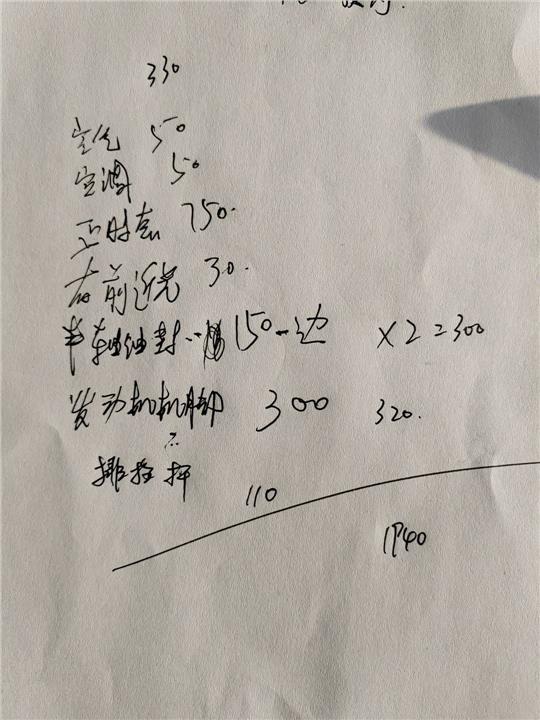 330
空气 50
空调 50
正时套 750.
右前近光 30.
半轴油封 150一边 ×2=300
发动机机脚 300 320.
110
1940